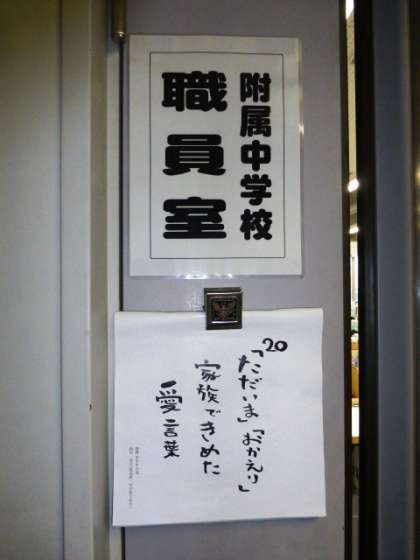 附属中学校
職員室
20
「ただいま」「おかえり」
家族できめた
愛言葉